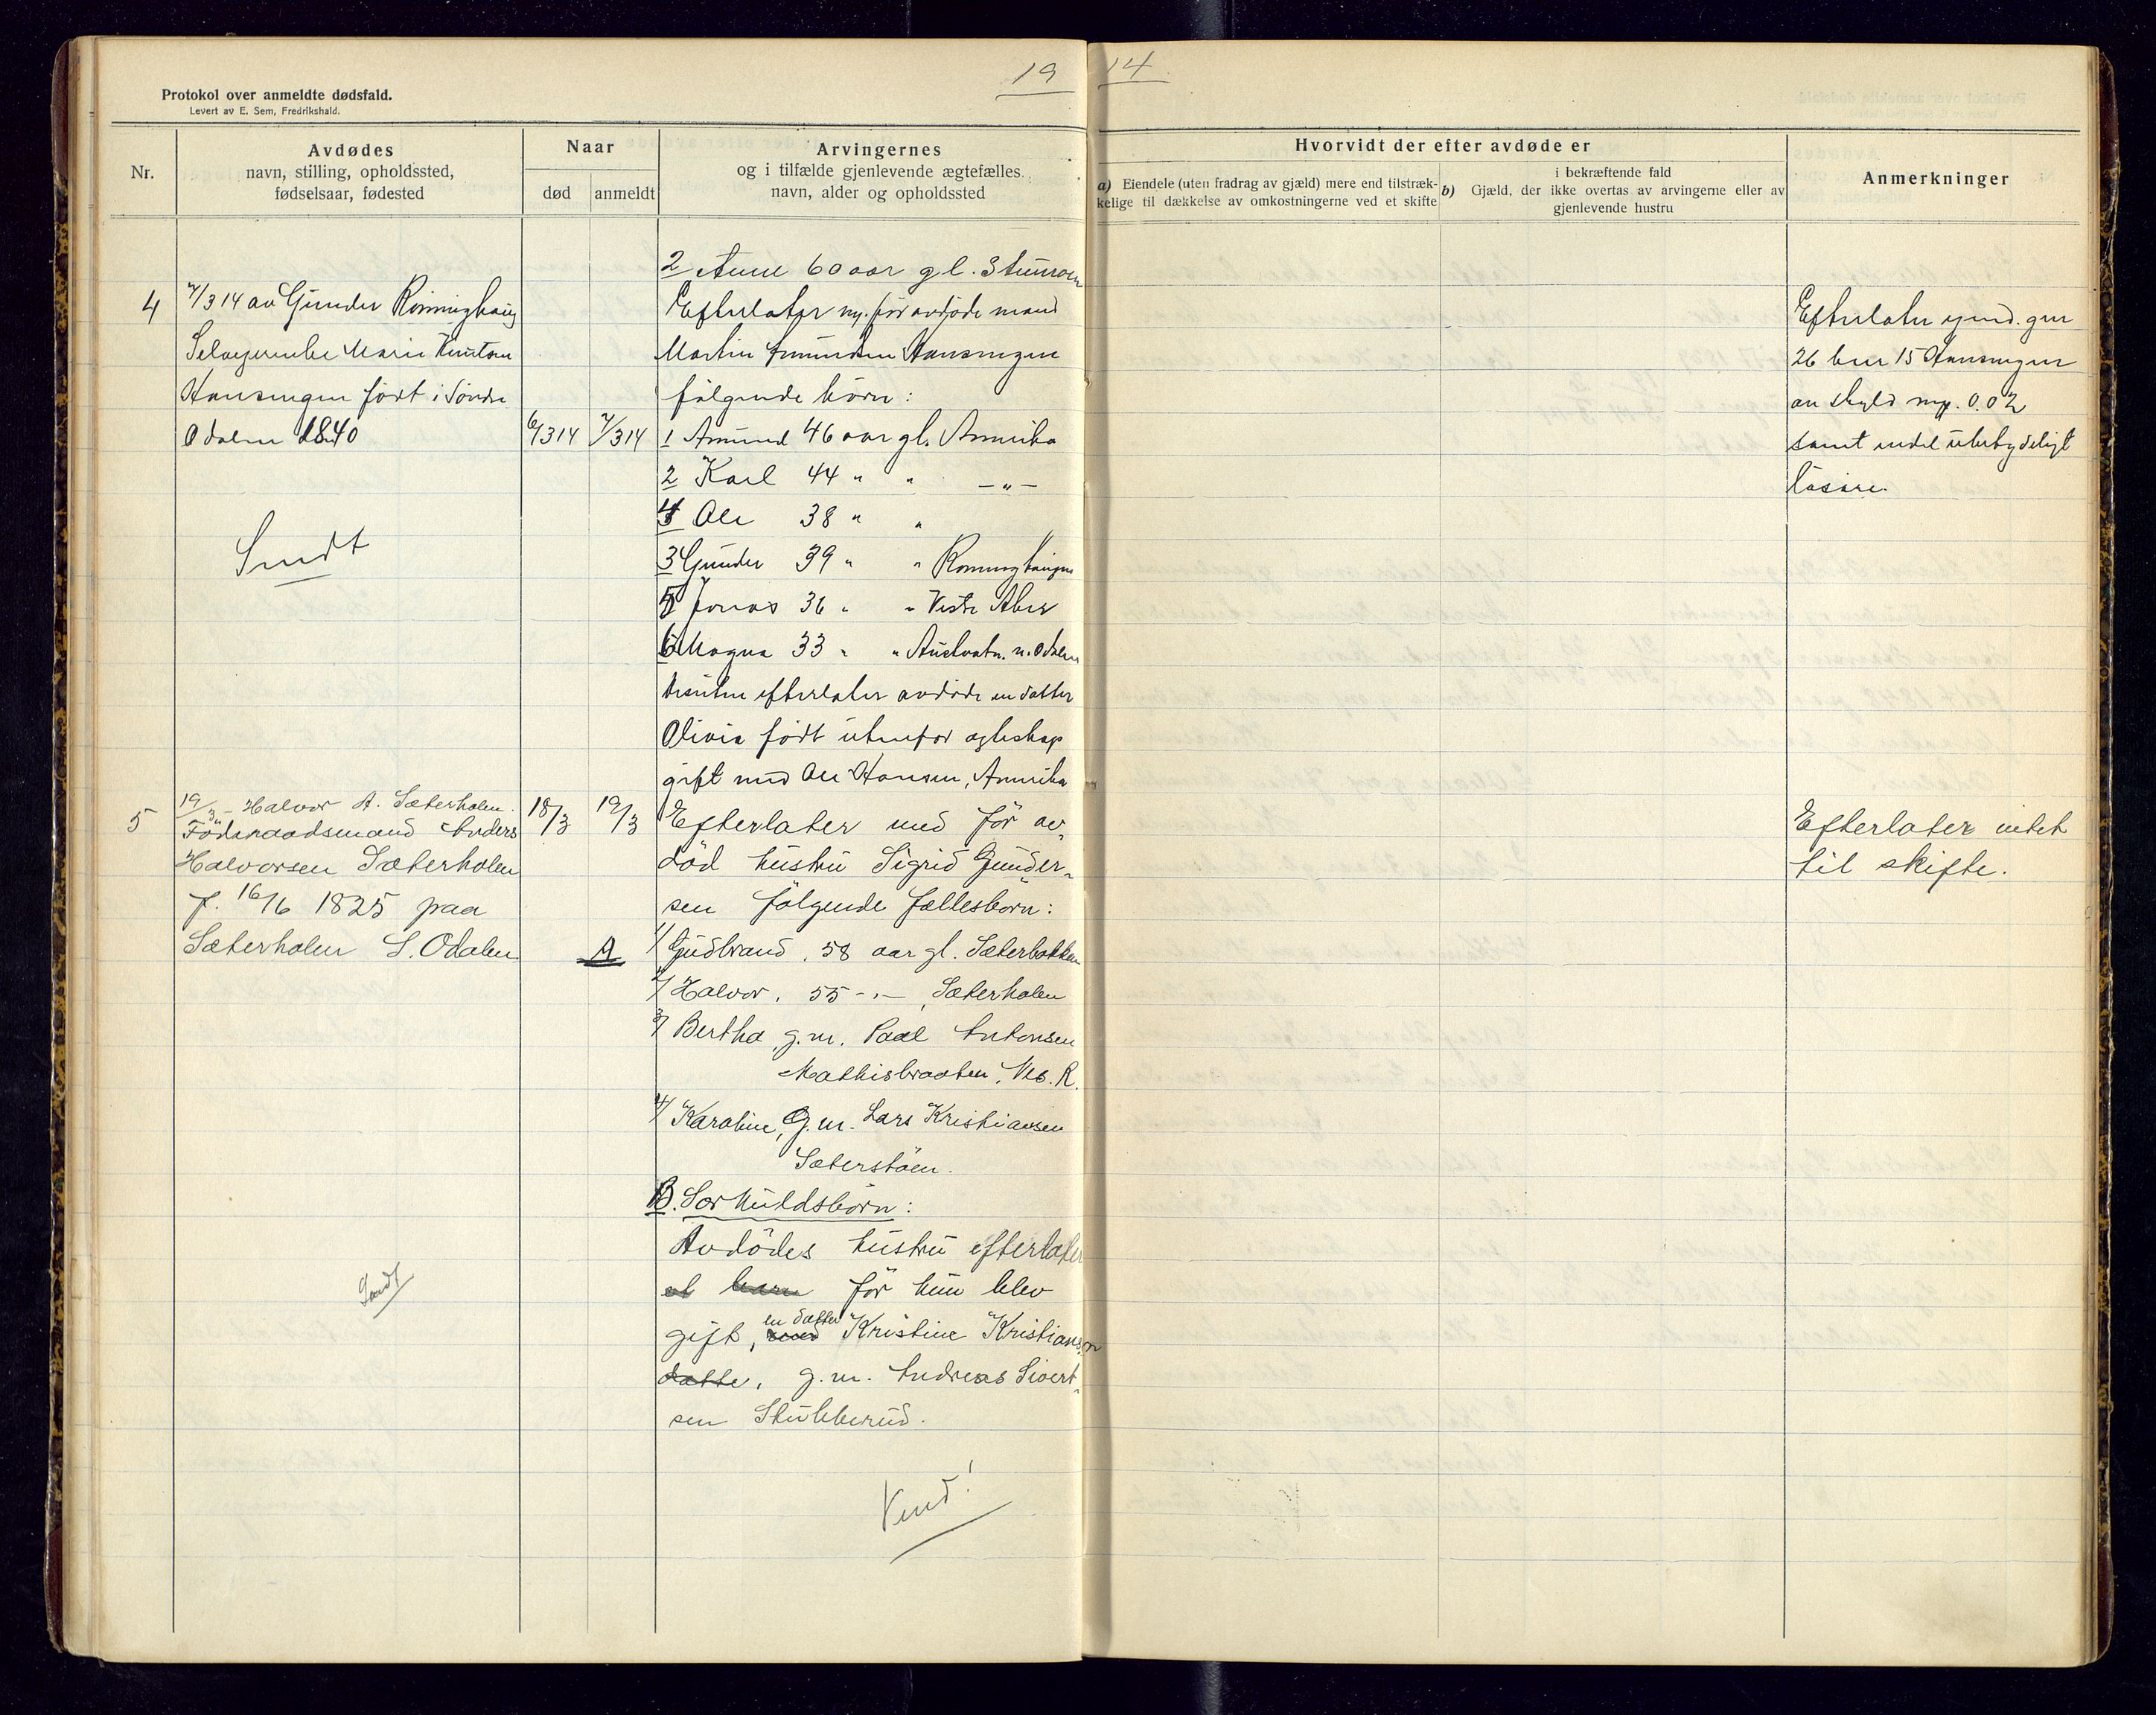 19 14
Protokol over anmeldte dødsfald.
Levert av E. Sem, Fredrikshald.
Nr.
Avdødes
navn, stilling, opholdssted,
fødselsaar, fødested
Naar
død
anmeldt
Arvingernes
og i tilfælde gjenlevende ægtefælles
navn, alder og opholdssted
Hvorvidt der efter avdøde er
a) Eiendele (uten fradrag av gjæld) mere end tilstræk-
kelige til dækkelse av omkostningerne ved et skifte
i bekræftende fald
b) Gjæld, der ikke overtas av arvingerne eller av
gjenlevende hustru
Anmerkninger
2 Anne 60 aar gl.
4
7/3 14 av Gunder Rönninghaug
Selveierenke Marie Knutsen
Hansungen född i Söndre
Odalen 1840
6/3 14
7/3 14
Sendt
Efterlater m. för avdöde mand
Martin Amundsen Hansungen
følgende börn:
1 Amund 46 aar gl. Amerika
2 Karl 44 " " — " —
4 Ole 38 " "
3 Gunder 39 " " Rönninghaugen
5 Jonas 36 " " Vestre Aker
6 Magna 33 " " n. Odalen
desuten efterlater avdöde en datter
Olivia födt utenfor egteskap
gift med Ole Hansen, Amerika
Efterlater eiend. gnr
26 bnr 15 Hansungen
av skyld mk. 0.02
samt endel ubetydeligt
lösöre.
5
19/3 - Halvor A. Sæterholen
Föderaadsmand Anders
Halvorsen Sæterholen
f. 16/6 1825 paa
Sæterholen S. Odalen
18/3
19/3
A
Sendt
Efterlater med för av-
död hustru Sigrid Gunder-
sen følgende fællesbörn:
1/ Gudbrand, 58 aar gl. Sæterbakken
2/ Halvor, 55 - " - , Sæterholen
3/ Bertha, g.m. Paal Antonsen
Mathisbraaten, Nes. R.
4/ Karoline, g.m. Lars Kristiansen
Sæterstöen.
B. Særkuldsbörn:
Avdödes hustru efterlater
et barn för hun blev
gift, en datter Kristine Kristiansen
datte, g.m. Andreas Sivert-
sen Stubberud.
Vend!
Efterlater intet
til skifte.